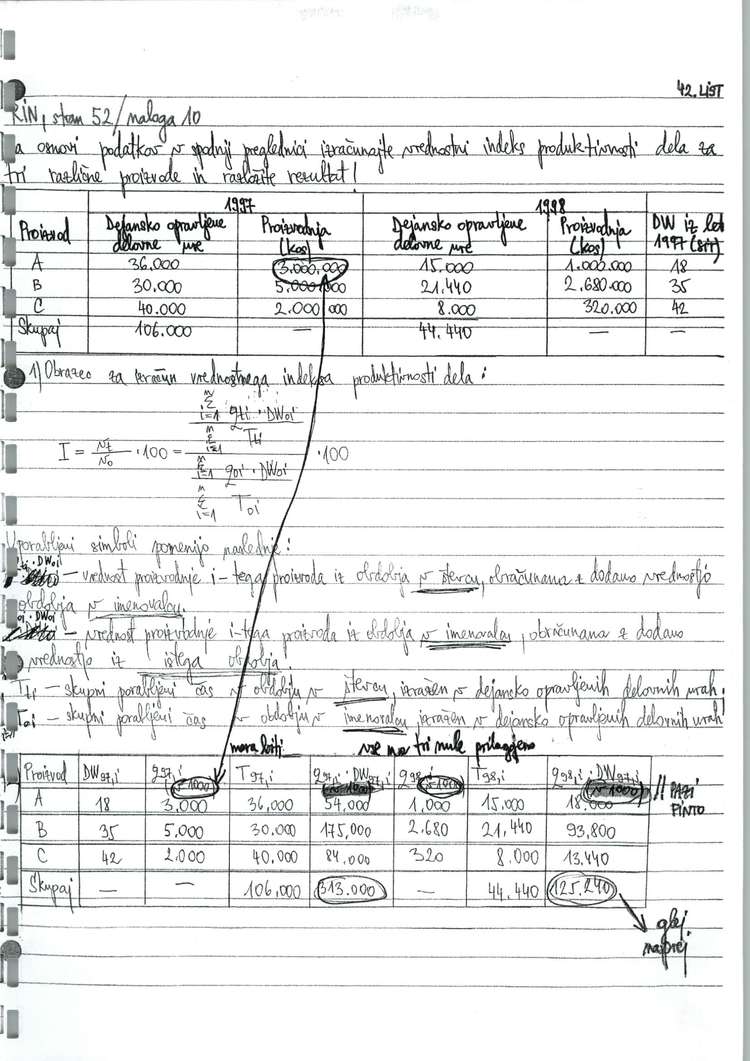 42. LIST
RIN, stran 52/naloga 10
a osnovi podatkov v spodnji preglednici izračunajte vrednostni indeks produktivnosti dela za
tri različne proizvode in razložite rezultat!
1997 1998
Proizvod Dejansko opravljene delovne ure Proizvodnja (kos) Dejansko opravljene delovne ure Proizvodnja (kos) DW iz let 1997 (SIT)
A 36.000 3.000.000 15.000 1.000.000 18
B 30.000 5.000.000 21.440 2.680.000 35
C 40.000 2.000.000 8.000 320.000 42
Skupaj 106.000 — 44.440 — —
1) Obrazec za izračun vrednostnega indeksa produktivnosti dela:
n
Σ qti · DWoi
i=1
n
Σ Tti
i=1
I = vt/vo · 100 = · 100
n
Σ qoi · DWoi
i=1
n
Σ Toi
i=1
Uporabljeni simboli pomenijo naslednje:
DWoi – vrednost proizvodnje i-tega proizvoda iz obdobja v števcu, obračunana z dodano vrednostjo
obdobja v imenovalcu.
oi · DWoi – vrednost proizvodnje i-tega proizvoda iz obdobja v imenovalcu, obračunana z dodano
vrednostjo iz istega obdobja.
Tti – skupni porabljeni čas v obdobju v števcu, izražen v dejansko opravljenih delovnih urah.
Toi – skupni porabljeni čas v obdobju v imenovalcu, izražen v dejansko opravljenih delovnih urah
mora biti vse na tri nule prilagojeno
Proizvod DW97,i q97,i (v 1000) T97,i q97,i · DW97,i (v 1000) q98,i (v 1000) T98,i q98,i · DW97,i (v 1000) // PAZI FINTO
A 18 3.000 36,000 54.000 1,000 15.000 18.000
B 35 5.000 30.000 175,000 2.680 21,440 93,800
C 42 2.000 40,000 84,000 320 8.000 13.440
Skupaj — — 106,000 313.000 — 44.440 125.240
glej
naprej